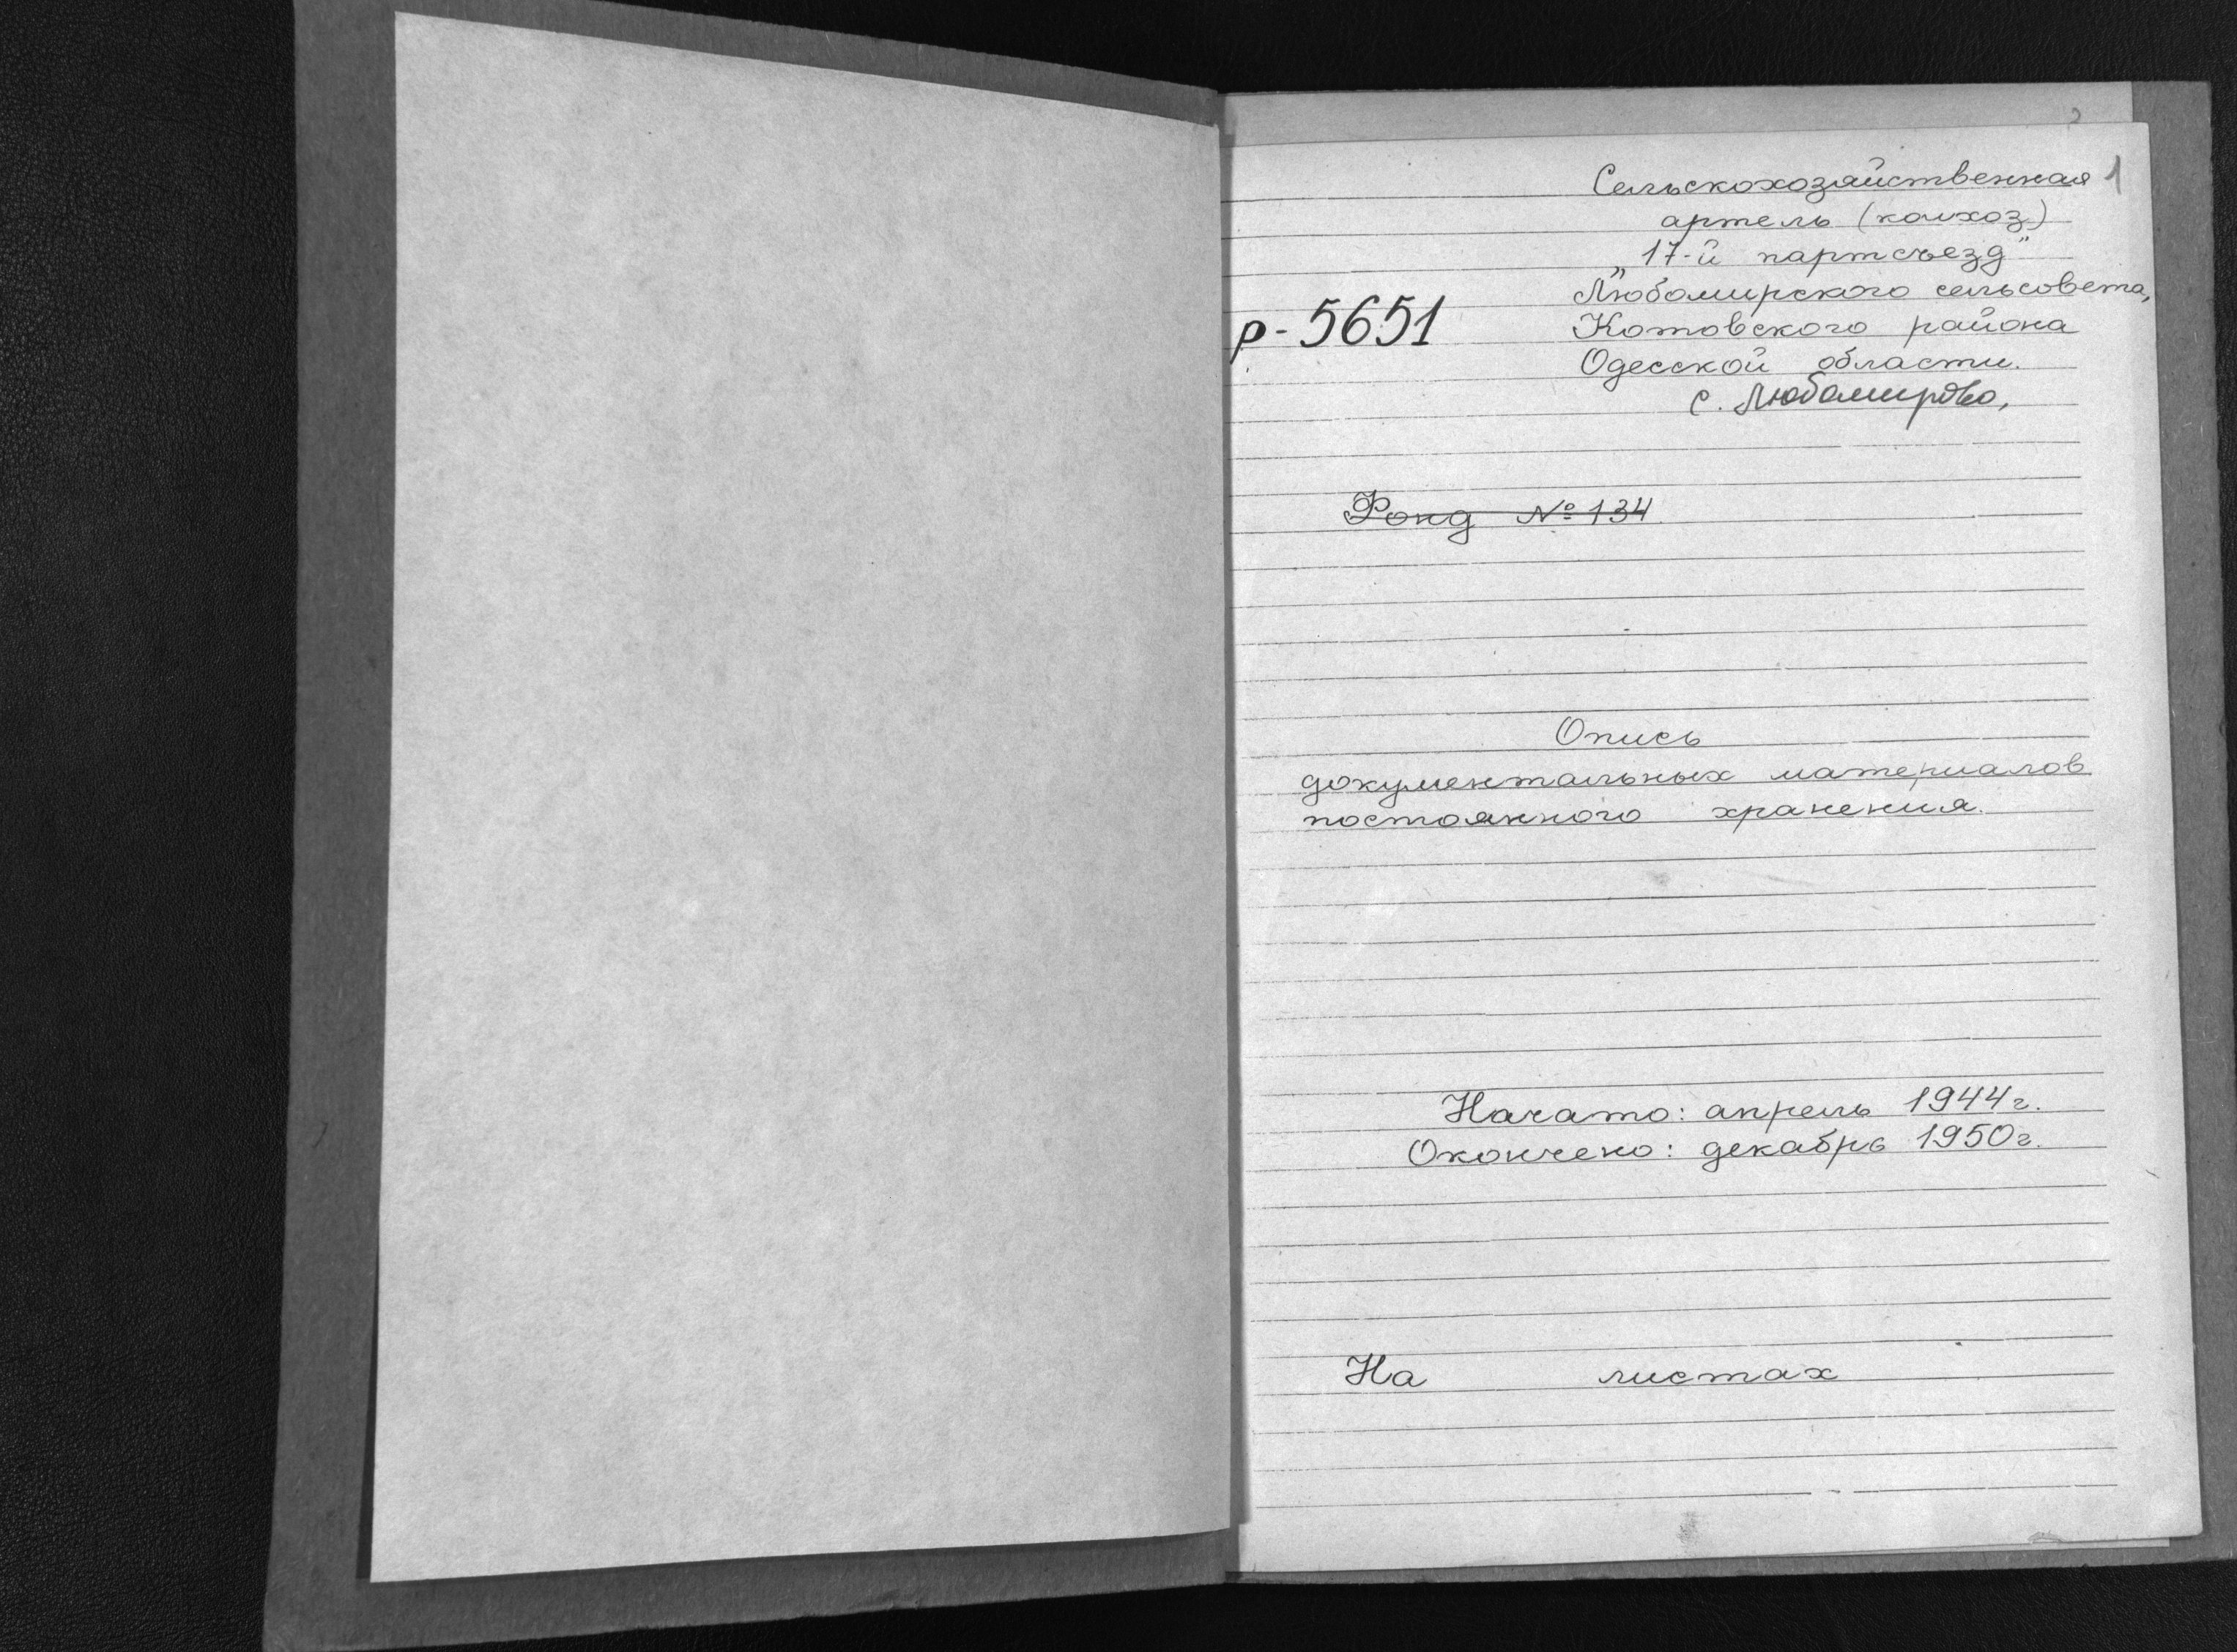 2
Сельскохозяйственная 1
артель (колхоз)
„17-й партсъезд"
Любомирского сельсовета,
р-5651 Котовского района
Одесской области.
с. Любомирово,
Фонд № 134.
Опись
документальных материалов
постоянного хранения.
Начато: апрель 1944г.
Окончено: декабрь 1950г.
На листах